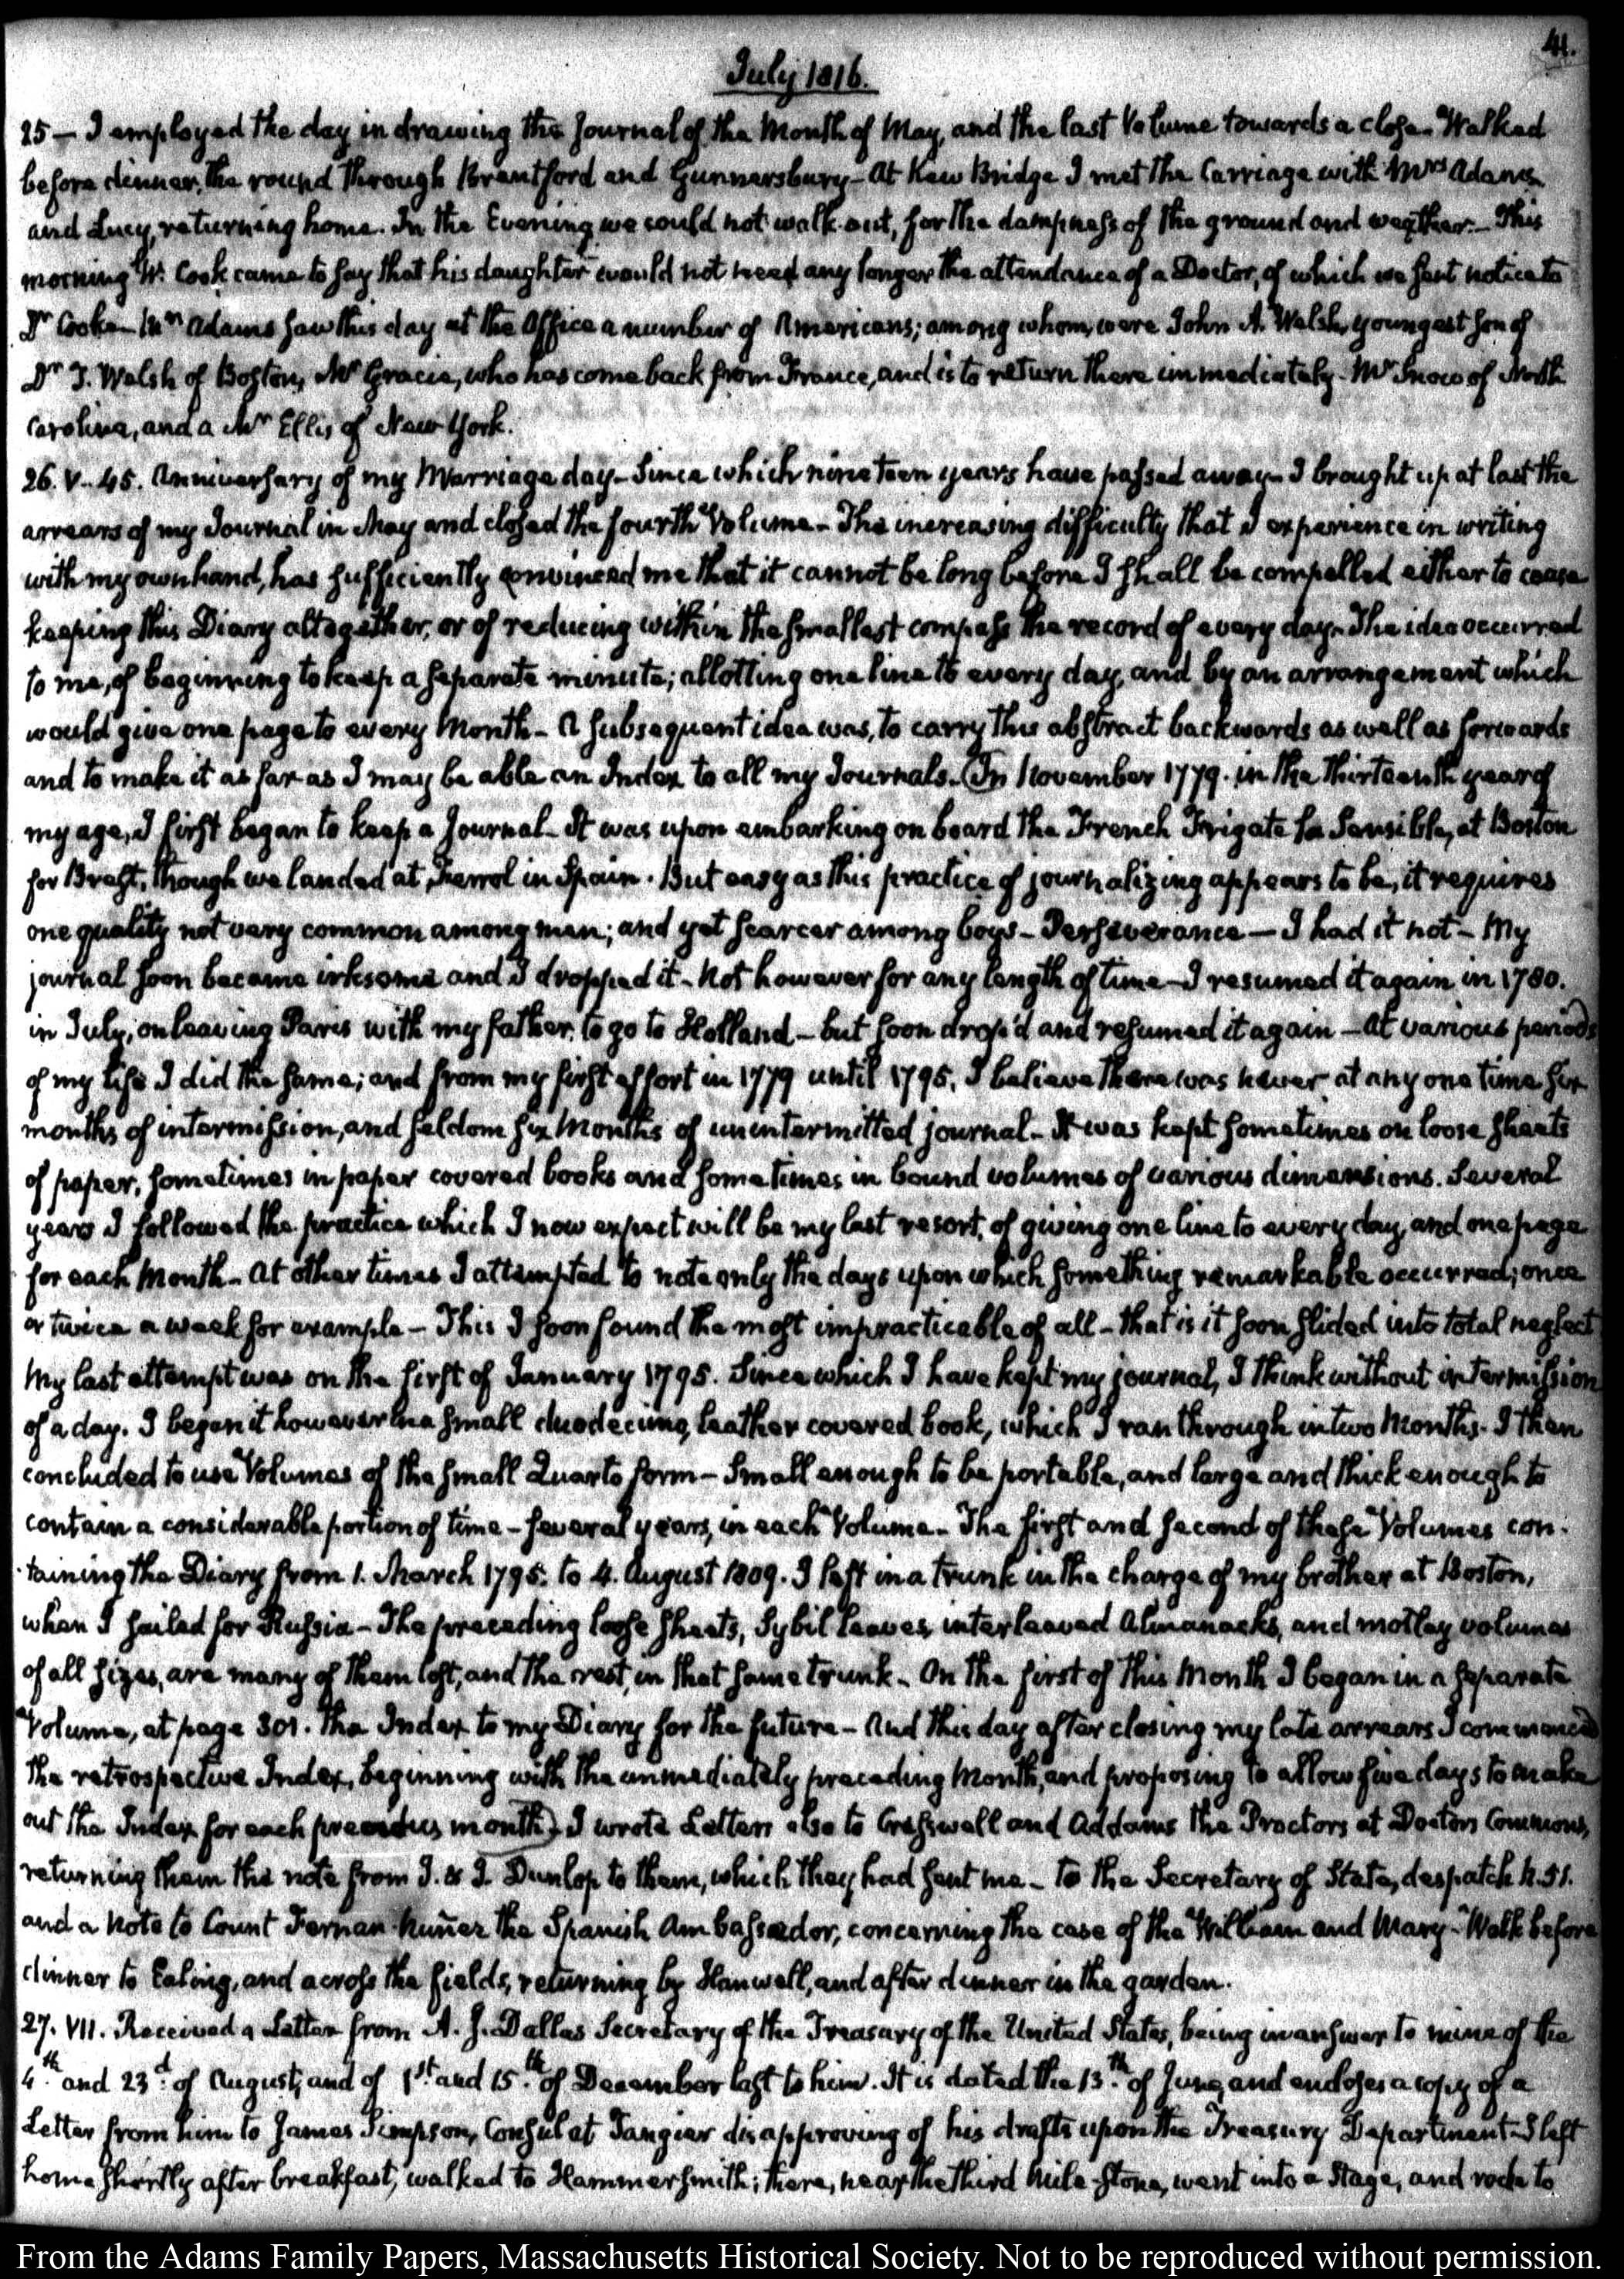 41.
July 1816.
25 — I employed the day in drawing the Journal of the Month of May, and the last Volume towards a close. Walked
before dinner, the round through Brentford and Gunnersbury — At Kew Bridge I met the Carriage with Mrs Adams
and Lucy, returning home. In the Evening we could not walk out, for the dampness of the ground and weather. — This
morning Mr. Cook came to say that his daughter would not need any longer the attendance of a Doctor, of which we sent notice to
Dr Cooke — Mrs Adams saw this day at the Office a number of Americans; among whom, were John A. Welsh, youngest son of
Dr T. Welsh of Boston, Mr Gracie, who has come back from France, and is to return there immediately — Mr Snow of North
Carolina, and a Mr Ellis of New York.
26. V. 45. Anniversary of my Marriage day — Since which nineteen years have passed away — I brought up at last the
arrears of my Journal in May and closed the fourth Volume — The increasing difficulty that I experience in writing
with my own hand, has sufficiently convinced me that it cannot be long before I shall be compelled either to cease
keeping this Diary altogether, or of reducing within the smallest compass the record of every day. The idea occurred
to me, of beginning to keep a separate minute; allotting one line to every day, and by an arrangement which
would give one page to every Month — A subsequent idea was, to carry this abstract backwards as well as forwards
and to make it as far as I may be able an Index to all my Journals. (In November 1779. in the thirteenth year of
my age, I first began to keep a Journal — It was upon embarking on board the French Frigate la Sensible, at Boston
for Brest, though we landed at Ferrol in Spain. But easy as this practice of journalizing appears to be, it requires
one quality not very common among men; and yet scarcer among boys — Perseverance — I had it not — My
journal soon became irksome and I dropped it — Not however for any length of time — I resumed it again in 1780.
in July, on leaving Paris with my father, to go to Holland — but soon drop'd and resumed it again — At various periods
of my life I did the same; and from my first effort in 1779 until 1795, I believe there was never at any one time six
months of intermission, and seldom six Months of unintermitted journal — It was kept sometimes on loose sheets
of paper, sometimes in paper covered books and sometimes in bound volumes of various dimensions. Several
years I followed the practice which I now expect will be my last resort, of giving one line to every day, and one page
for each Month — At other times I attempted to note only the days upon which something remarkable occurred; once
or twice a week for example — This I soon found the most impracticable of all — that is it soon slided into total neglect
My last attempt was on the first of January 1795. Since which I have kept my journal, I think without intermission
of a day. I began it however in a small duodecimo, leather covered book, which I ran through in two Months. I then
concluded to use Volumes of the small Quarto form — Small enough to be portable, and large and thick enough to
contain a considerable portion of time — several years, in each Volume — The first and second of these Volumes con-
taining the Diary from 1. March 1795. to 4. August 1809. I left in a trunk in the charge of my brother at Boston,
when I sailed for Russia — The preceding loose sheets, Sybil leaves, interleaved Almanacks, and motley volumes
of all sizes, are many of them lost, and the rest, in that same trunk — On the first of this Month I began in a separate
Volume, at page 301. the Index to my Diary for the future — And this day after closing my late arrears I commenced
the retrospective Index, beginning with the immediately preceding Month, and proposing to allow five days to make
out the Index for each month) I wrote Letters also to Cresswell and Addams the Proctors at Doctors Commons,
returning them the note from J. & J. Dunlop to them, which they had sent me — to the Secretary of State, despatch N. 51.
and a Note to Count Fernan-Nuñez the Spanish Ambassador, concerning the case of the William and Mary — Walk before
dinner to Ealing, and across the fields, returning by Hanwell, and after dinner in the garden.
27. VII. Received a Letter from A. J. Dallas Secretary of the Treasury of the United States, being in answer to mine of the
4th. and 23d. of August, and of 1st. and 15th. of December last to him. It is dated the 13th. of June, and encloses a copy of a
Letter from him to James Simpson, Consul at Tangier disapproving of his drafts upon the Treasury Department — I left
home shortly after breakfast, walked to Hammersmith; there, near the third Mile-Stone, went into a Stage, and rode to
From the Adams Family Papers, Massachusetts Historical Society. Not to be reproduced without permission.